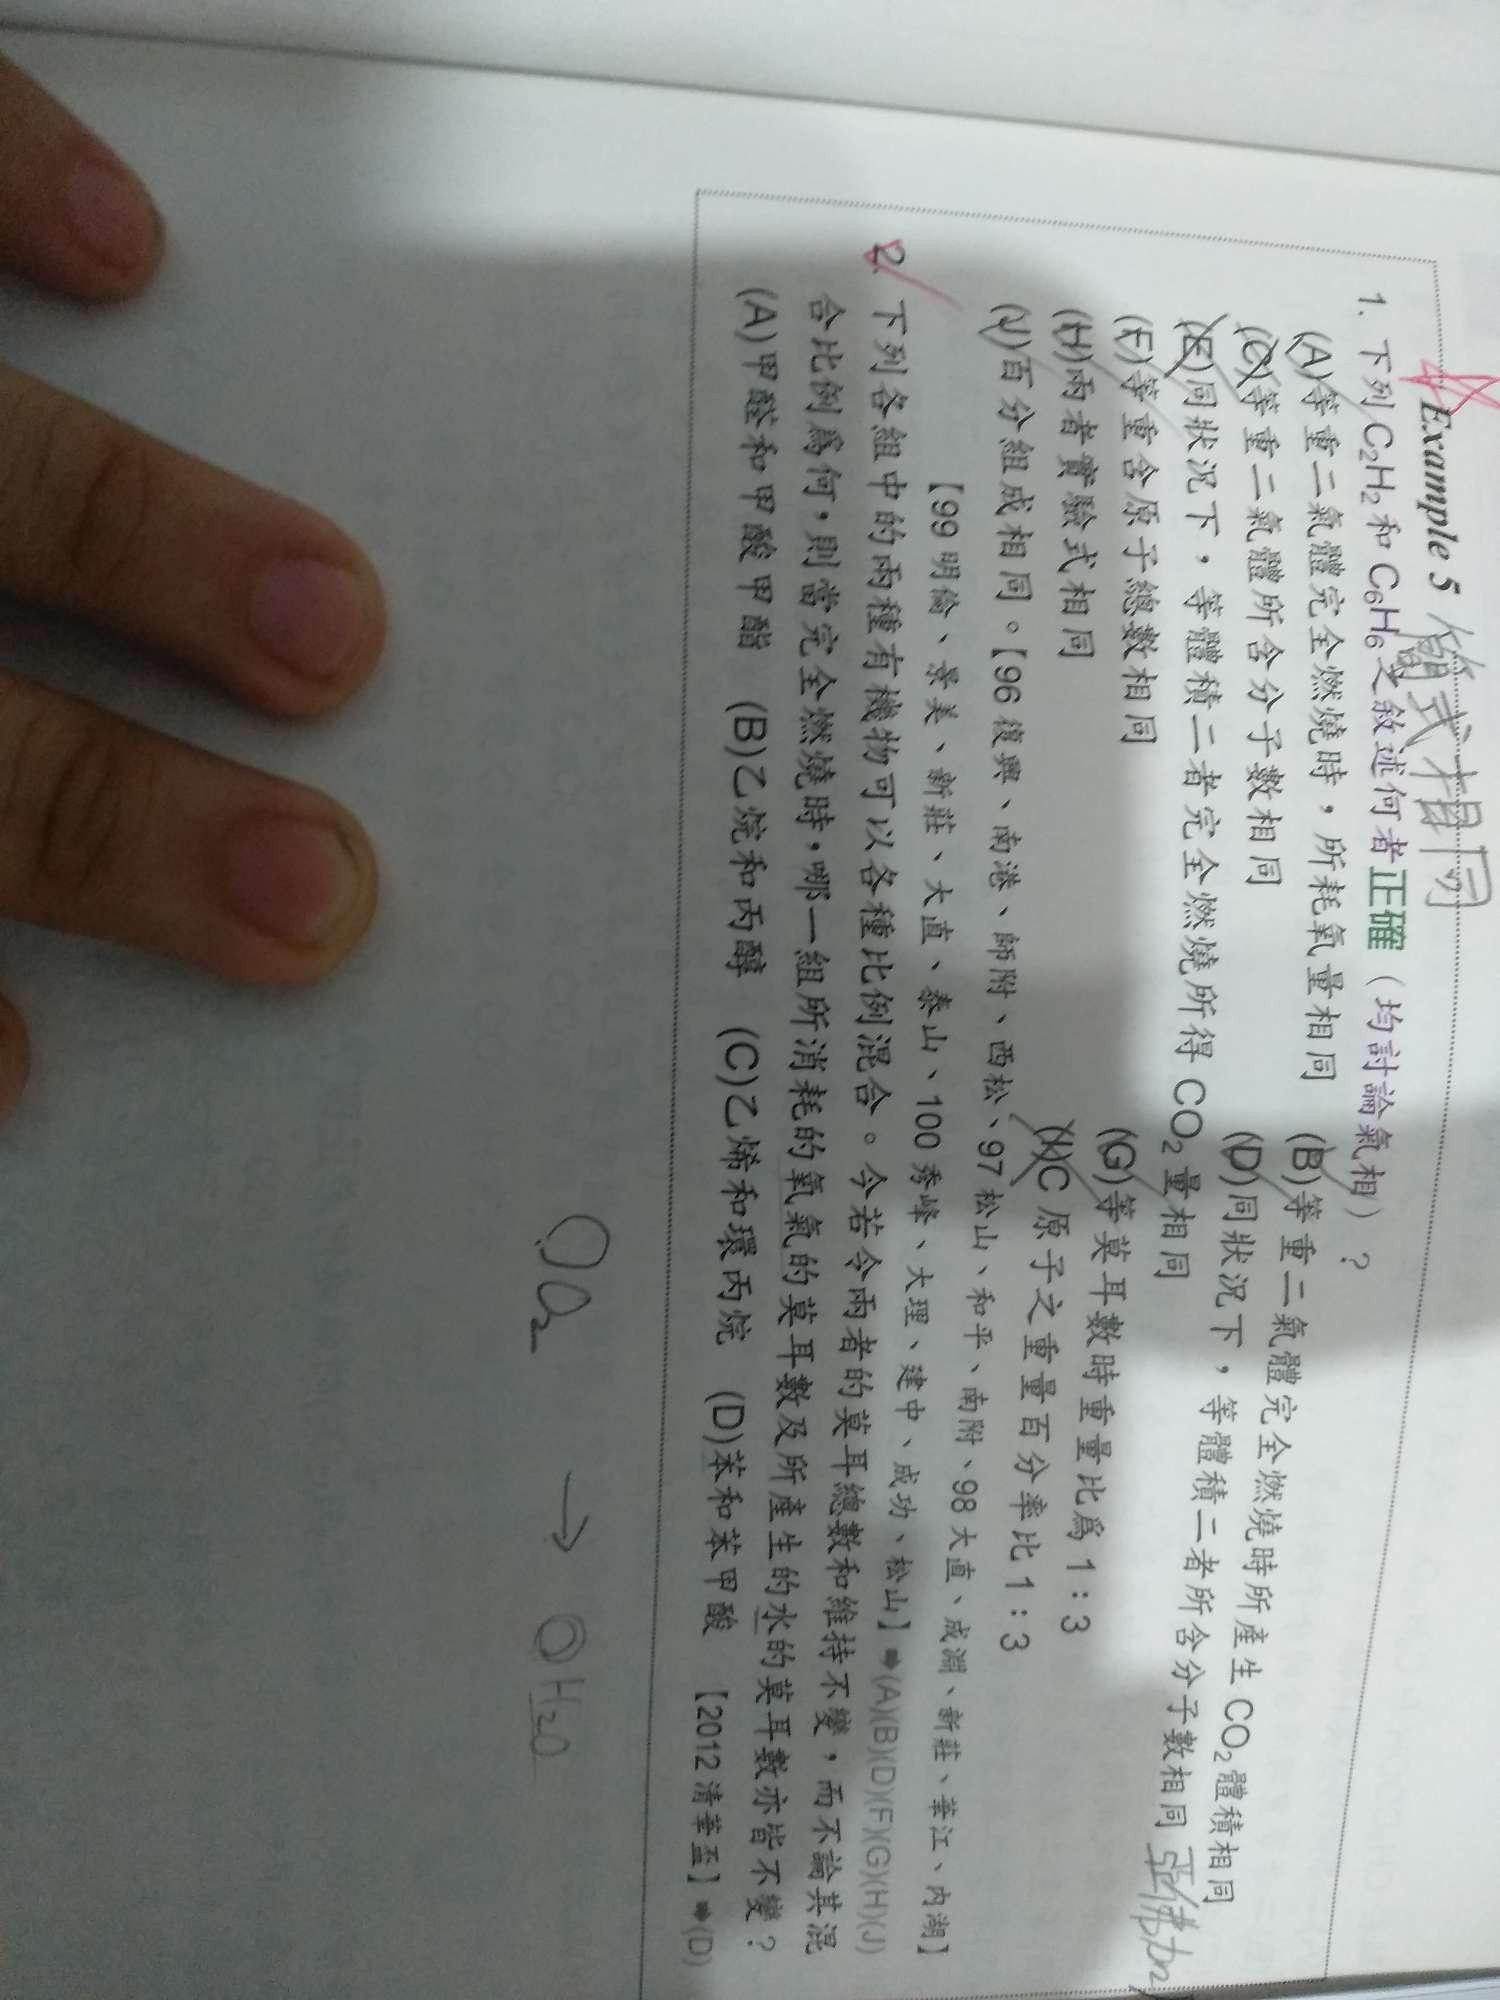 Example 5 簡式相同
1. 下列 C₂H₂ 和 C₆H₆ 之敘述何者正確（均討論氣相）？
(A)等重二氣體完全燃燒時，所耗氧量相同 (B)等重二氣體完全燃燒時所產生 CO₂ 體積相同
(C)等重二氣體所含分子數相同 (D)同狀況下，等體積二者所含分子數相同 亞佛加
(E)同狀況下，等體積二者完全燃燒所得 CO₂ 量相同
(F)等重含原子總數相同 (G)等莫耳數時重量比為 1：3
(H)兩者實驗式相同 (I)C 原子之重量百分率比 1：3
(J)百分組成相同。【96 復興、南港、師附、西松、97 松山、和平、南附、98 大直、成淵、新莊、華江、內湖】
【99 明倫、景美、新莊、大直、泰山、100 秀峰、大理、建中、成功、松山】➡(A)(B)(D)(F)(G)(H)(J)
2. 下列各組中的兩種有機物可以各種比例混合。今若令兩者的莫耳總數和維持不變，而不論其混
合比例為何，則當完全燃燒時，哪一組所消耗的氧氣的莫耳數及所產生的水的莫耳數亦皆不變？
(A)甲醛和甲酸甲酯 (B)乙烷和丙醇 (C)乙烯和環丙烷 (D)苯和苯甲酸 【2012 清華盃】➡(D)
O₂ → H₂O